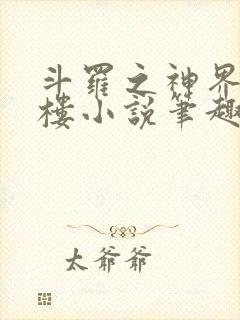 斗羅之神界
樓小說筆趣
太爺爺